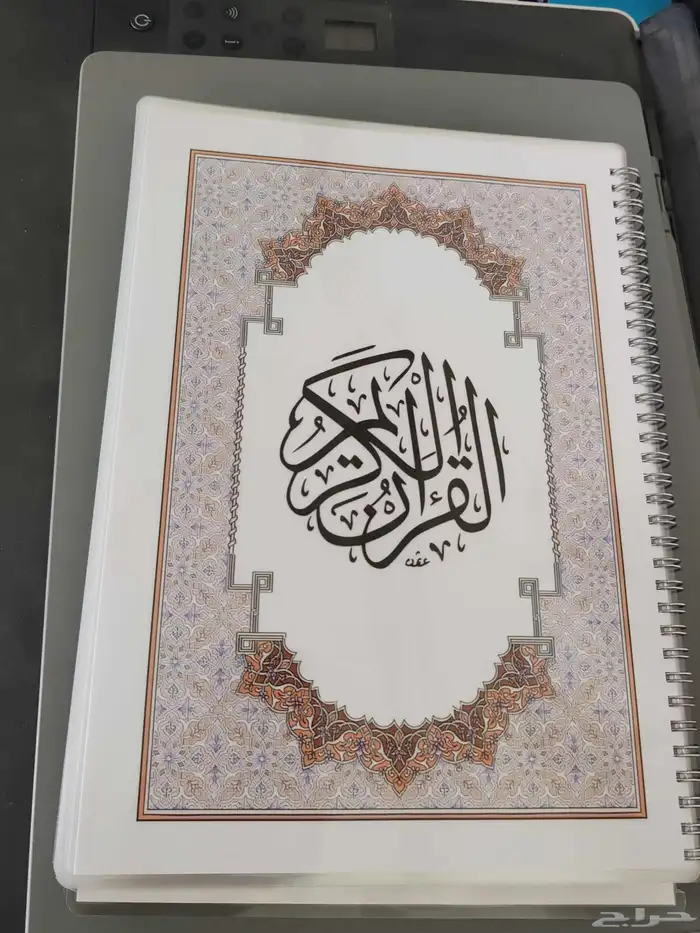 القرآن الكريم
حراج